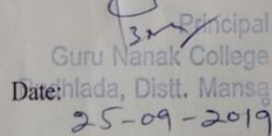 Principal
Guru Nanak College
Budhlada, Distt. Mansa
Date:
25-09-2019